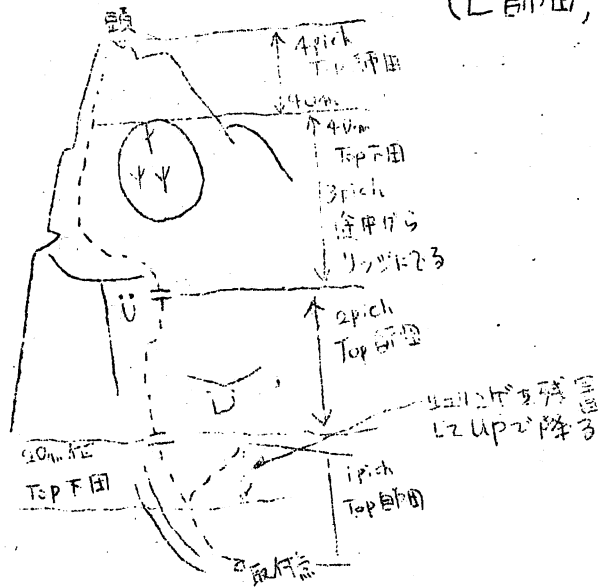 (L 師田,
頭
4pich
Top 師田
40m
40m
Top 下田
3pich
途中から
リッジにでる
2pich
Top 師田
シュリンゲを残置
してUPで降る
20m位
Top 下田
1pich
Top 師田
取付点